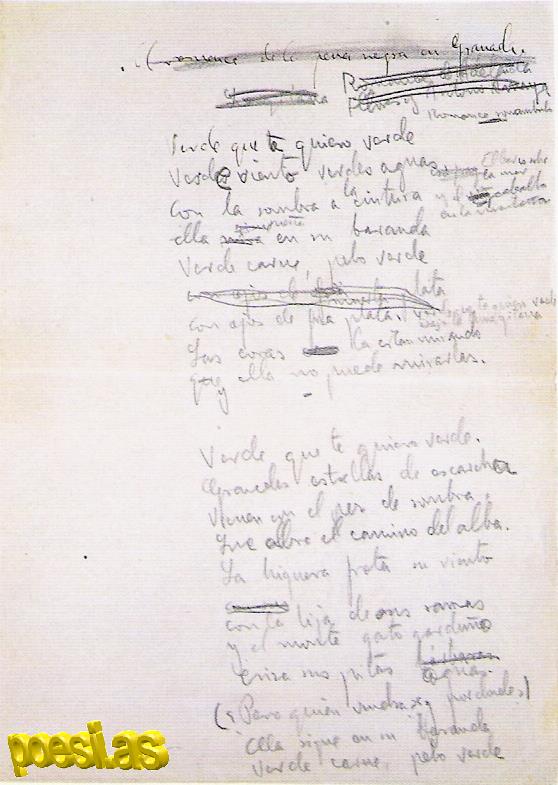 Romance de la pena negra en Granada.
Romance sonambulo
Verde que te quiero verde
Verde viento verdes aguas
El barco sobre
la mar
y el caballo
en la montaña
Con la sombra a la cintura
sueña
ella en su baranda
Verde carne, pelo verde
con ojos de plata
con ojos de fria plata.
Verde que te quiero verde
bajo la luna gitana
Las cosas la estan mirando
y ella no puede mirarlas.
Verde que te quiero verde.
Grandes estrellas de escarcha
vienen con el pez de sombra
que abre el camino del alba.
La higuera frota su viento
con la lija de sus ramas
y el monte gato garduño
eriza sus pitas agrias.
(¿Pero quien vendra? ¿y por donde?)
Ella sigue en su baranda
verde carne, pelo verde
poesi.as